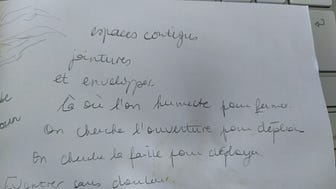 espaces contigus
jointures
et enveloppes.
Là où l'on humecte pour fermer.
On cherche l'ouverture pour déplier
On cherche la faille pour déployer.
sans douleur